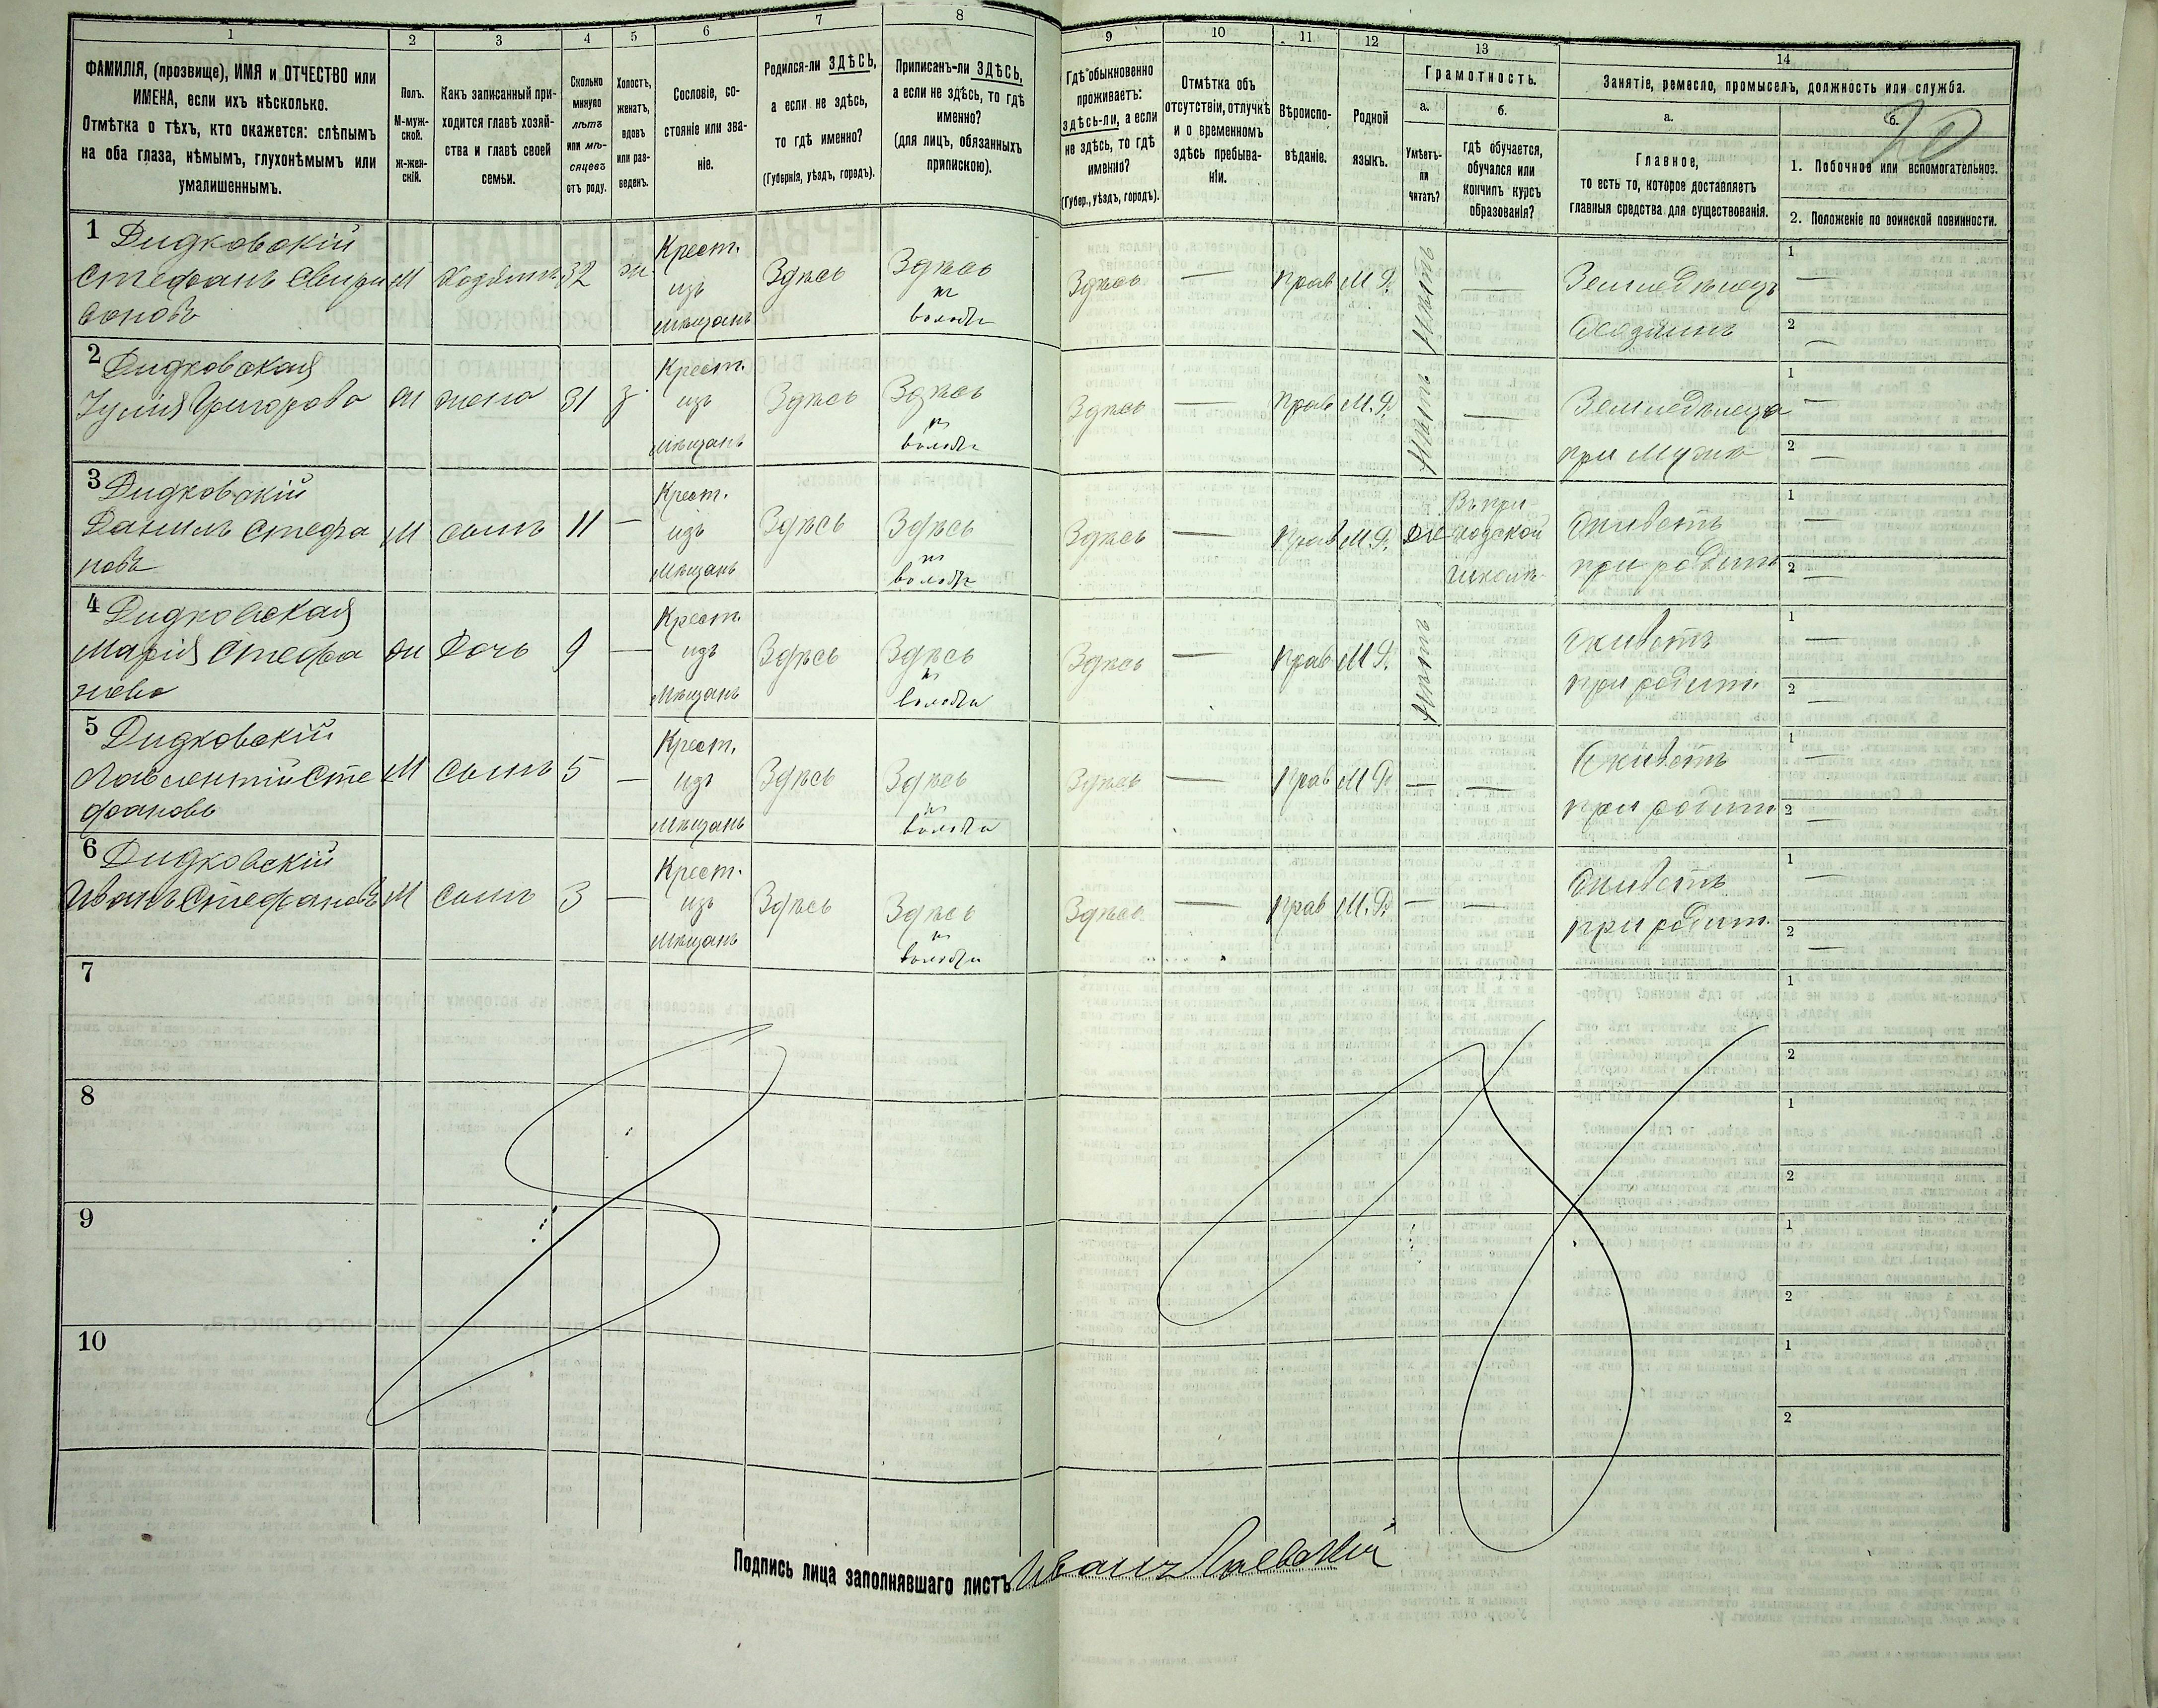 1
2
3
4
5
6
7
8
9
10
11
12
13
14
ФАМИЛІЯ, (прозвище), ИМЯ и ОТЧЕСТВО или
ИМЕНА, если ихъ нѣсколько.
Отмѣтка о тѣхъ, кто окажется: слѣпымъ
на оба глаза, нѣмымъ, глухонѣмымъ или
умалишеннымъ.
Полъ.
М-муж-
ской.
ж-жен-
скій.
Какъ записанный при-
ходится главѣ хозяй-
ства и главѣ своей
семьи.
Сколько
минуло
лѣтъ
или мѣ-
сяцевъ
отъ роду.
Холостъ,
женатъ,
вдовъ
или раз-
веденъ.
Сословіе, со-
стояніе или зва-
ніе.
Родился-ли ЗДѢСЬ,
а если не здѣсь,
то гдѣ именно?
(Губернія, уѣздъ, городъ).
Приписанъ-ли ЗДѢСЬ,
а если не здѣсь, то гдѣ
именно?
(для лицъ, обязанныхъ
припискою).
Гдѣ обыкновенно
проживаетъ:
здѣсь-ли, а если
не здѣсь, то гдѣ
именно?
(Губер., уѣздъ, городъ).
Отмѣтка объ
отсутствіи, отлучкѣ
и о временномъ
здѣсь пребыва-
ніи.
Вѣроиспо-
вѣданіе.
Родной
языкъ.
Грамотность.
а.
Умѣетъ-
ли
читать?
б.
гдѣ обучается,
обучался или
кончилъ курсъ
образованія?
Занятіе, ремесло, промыселъ, должность или служба.
а.
Главное,
то есть то, которое доставляетъ
главныя средства для существованія.
б.
20
1. Побочное или вспомогательное.
2. Положеніе по воинской повинности.
1 Дидковскій
Стефанъ Свири
доновъ
М
Хозяинъ
32
ж
Крест.
изъ
Мѣщанъ
Здѣсь
Здѣсь
Здѣсь
—
Прав
М. Р.
Нѣтъ
—
Земледѣлецъ
Хозяинъ
1 —
2 —
2 Дидковская
Іулія Григорова
ж
жена
31
з
Крест.
изъ
Мѣщанъ
Здѣсь
Здѣсь
Здѣсь
—
Прав
М. Р.
Нѣтъ
—
при мужѣ
1 —
2 —
3 Дидковскій
Данилъ Стефа
новъ
М
сынъ
11
—
Крест.
изъ
Мѣщанъ
Здѣсь
Здѣсь
Здѣсь
—
Прав
М. Р.
Въ при-
ходской
школѣ
Живетъ
при родит
1 —
2 —
4 Дидковская
Марія Стефа
нова
ж
Дочь
9
—
Крест.
изъ
Мѣщанъ
Здѣсь
Здѣсь
Здѣсь
—
Прав
М. Р.
Нѣтъ
Живетъ
при родит.
1 —
2 —
5 Дидковскій
Сте
фановъ
М
Сынъ
5
—
Крест.
изъ
Мѣщанъ
Здѣсь
Здѣсь
Здѣсь
—
Прав
М. Р.
—
—
Живетъ
при родит
1 —
2 —
6 Дидковскій
Иванъ Стефановъ
М
Сынъ
3
—
Крест.
изъ
Мѣщанъ
Здѣсь
Здѣсь
Здѣсь
—
Прав
М. Р.
—
—
Живетъ
при родит.
1 —
2 —
7
1
2
8
1
2
9
1
2
10
1
2
Подпись лица заполнявшаго листъ Иванъ